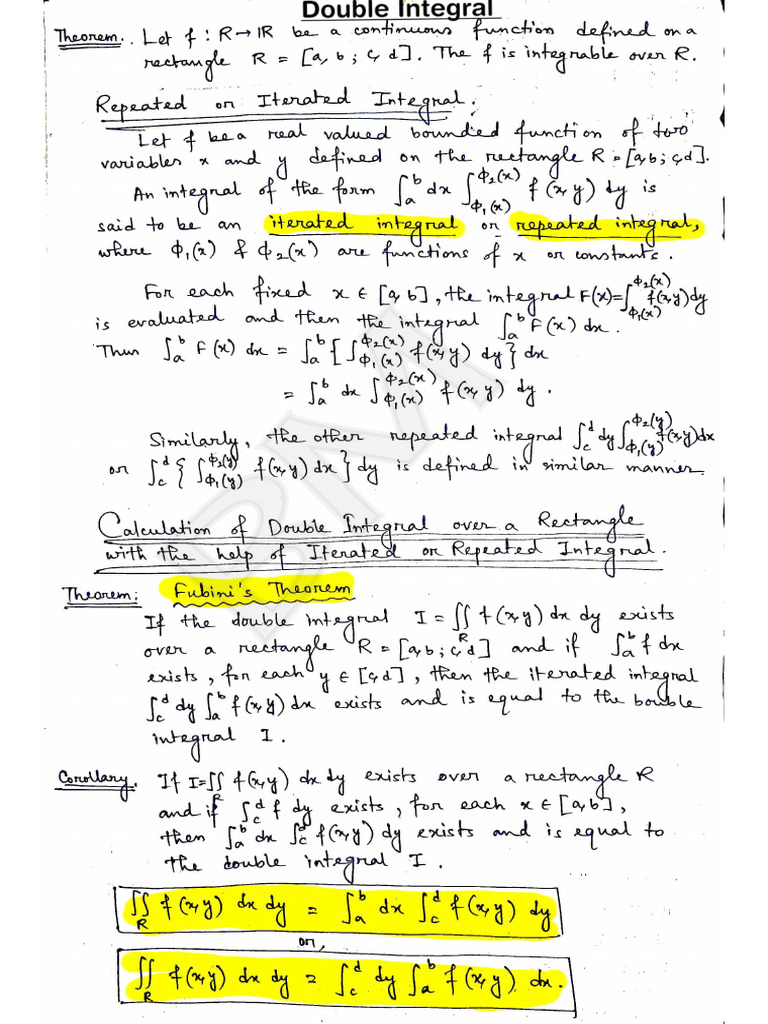 Double Integral
Theorem:. Let f : R→ IR be a continuous function defined on a
rectangle R = [a, b ; c, d]. The f is integrable over R.
Repeated or Iterated Integral.
Let f be a real valued bounded function of two
variables x and y defined on the rectangle R = [a, b; c, d].
An integral of the form ∫_a^b dx ∫_{ϕ₁(x)}^{ϕ₂(x)} f(x, y) dy is
said to be an iterated integral or repeated integral,
where ϕ₁(x) & ϕ₂(x) are functions of x or constants.
For each fixed x ∈ [a, b], the integral F(x)=∫_{ϕ₁(x)}^{ϕ₂(x)} f(x,y) dy
is evaluated and then the integral ∫_a^b F(x) dx.
Thus ∫_a^b F(x) dx = ∫_a^b { ∫_{ϕ₁(x)}^{ϕ₂(x)} f(x, y) dy } dx
= ∫_a^b dx ∫_{ϕ₁(x)}^{ϕ₂(x)} f(x, y) dy.
Similarly, the other repeated integral ∫_c^d dy ∫_{ϕ₁(y)}^{ϕ₂(y)} f(x,y) dx
or ∫_c^d { ∫_{ϕ₁(y)}^{ϕ₂(y)} f(x,y) dx } dy is defined in similar manner.
Calculation of Double Integral over a Rectangle
with the help of Iterated or Repeated Integral.
Theorem: Fubini's Theorem
If the double integral I = ∬_R f(x, y) dx dy exists
over a rectangle R = [a, b ; c, d] and if ∫_a^b f dx
exists, for each y ∈ [c, d], then the iterated integral
∫_c^d dy ∫_a^b f(x, y) dx exists and is equal to the bouble
integral I.
Corollary. If I=∬_R f(x, y) dx dy exists over a rectangle R
and if ∫_c^d f dy exists, for each x ∈ [a, b],
then ∫_a^b dx ∫_c^d f(x, y) dy exists and is equal to
the double integral I.
∬_R f(x, y) dx dy = ∫_a^b dx ∫_c^d f(x, y) dy
or,
∬_R f(x, y) dx dy = ∫_c^d dy ∫_a^b f(x, y) dx.
BM